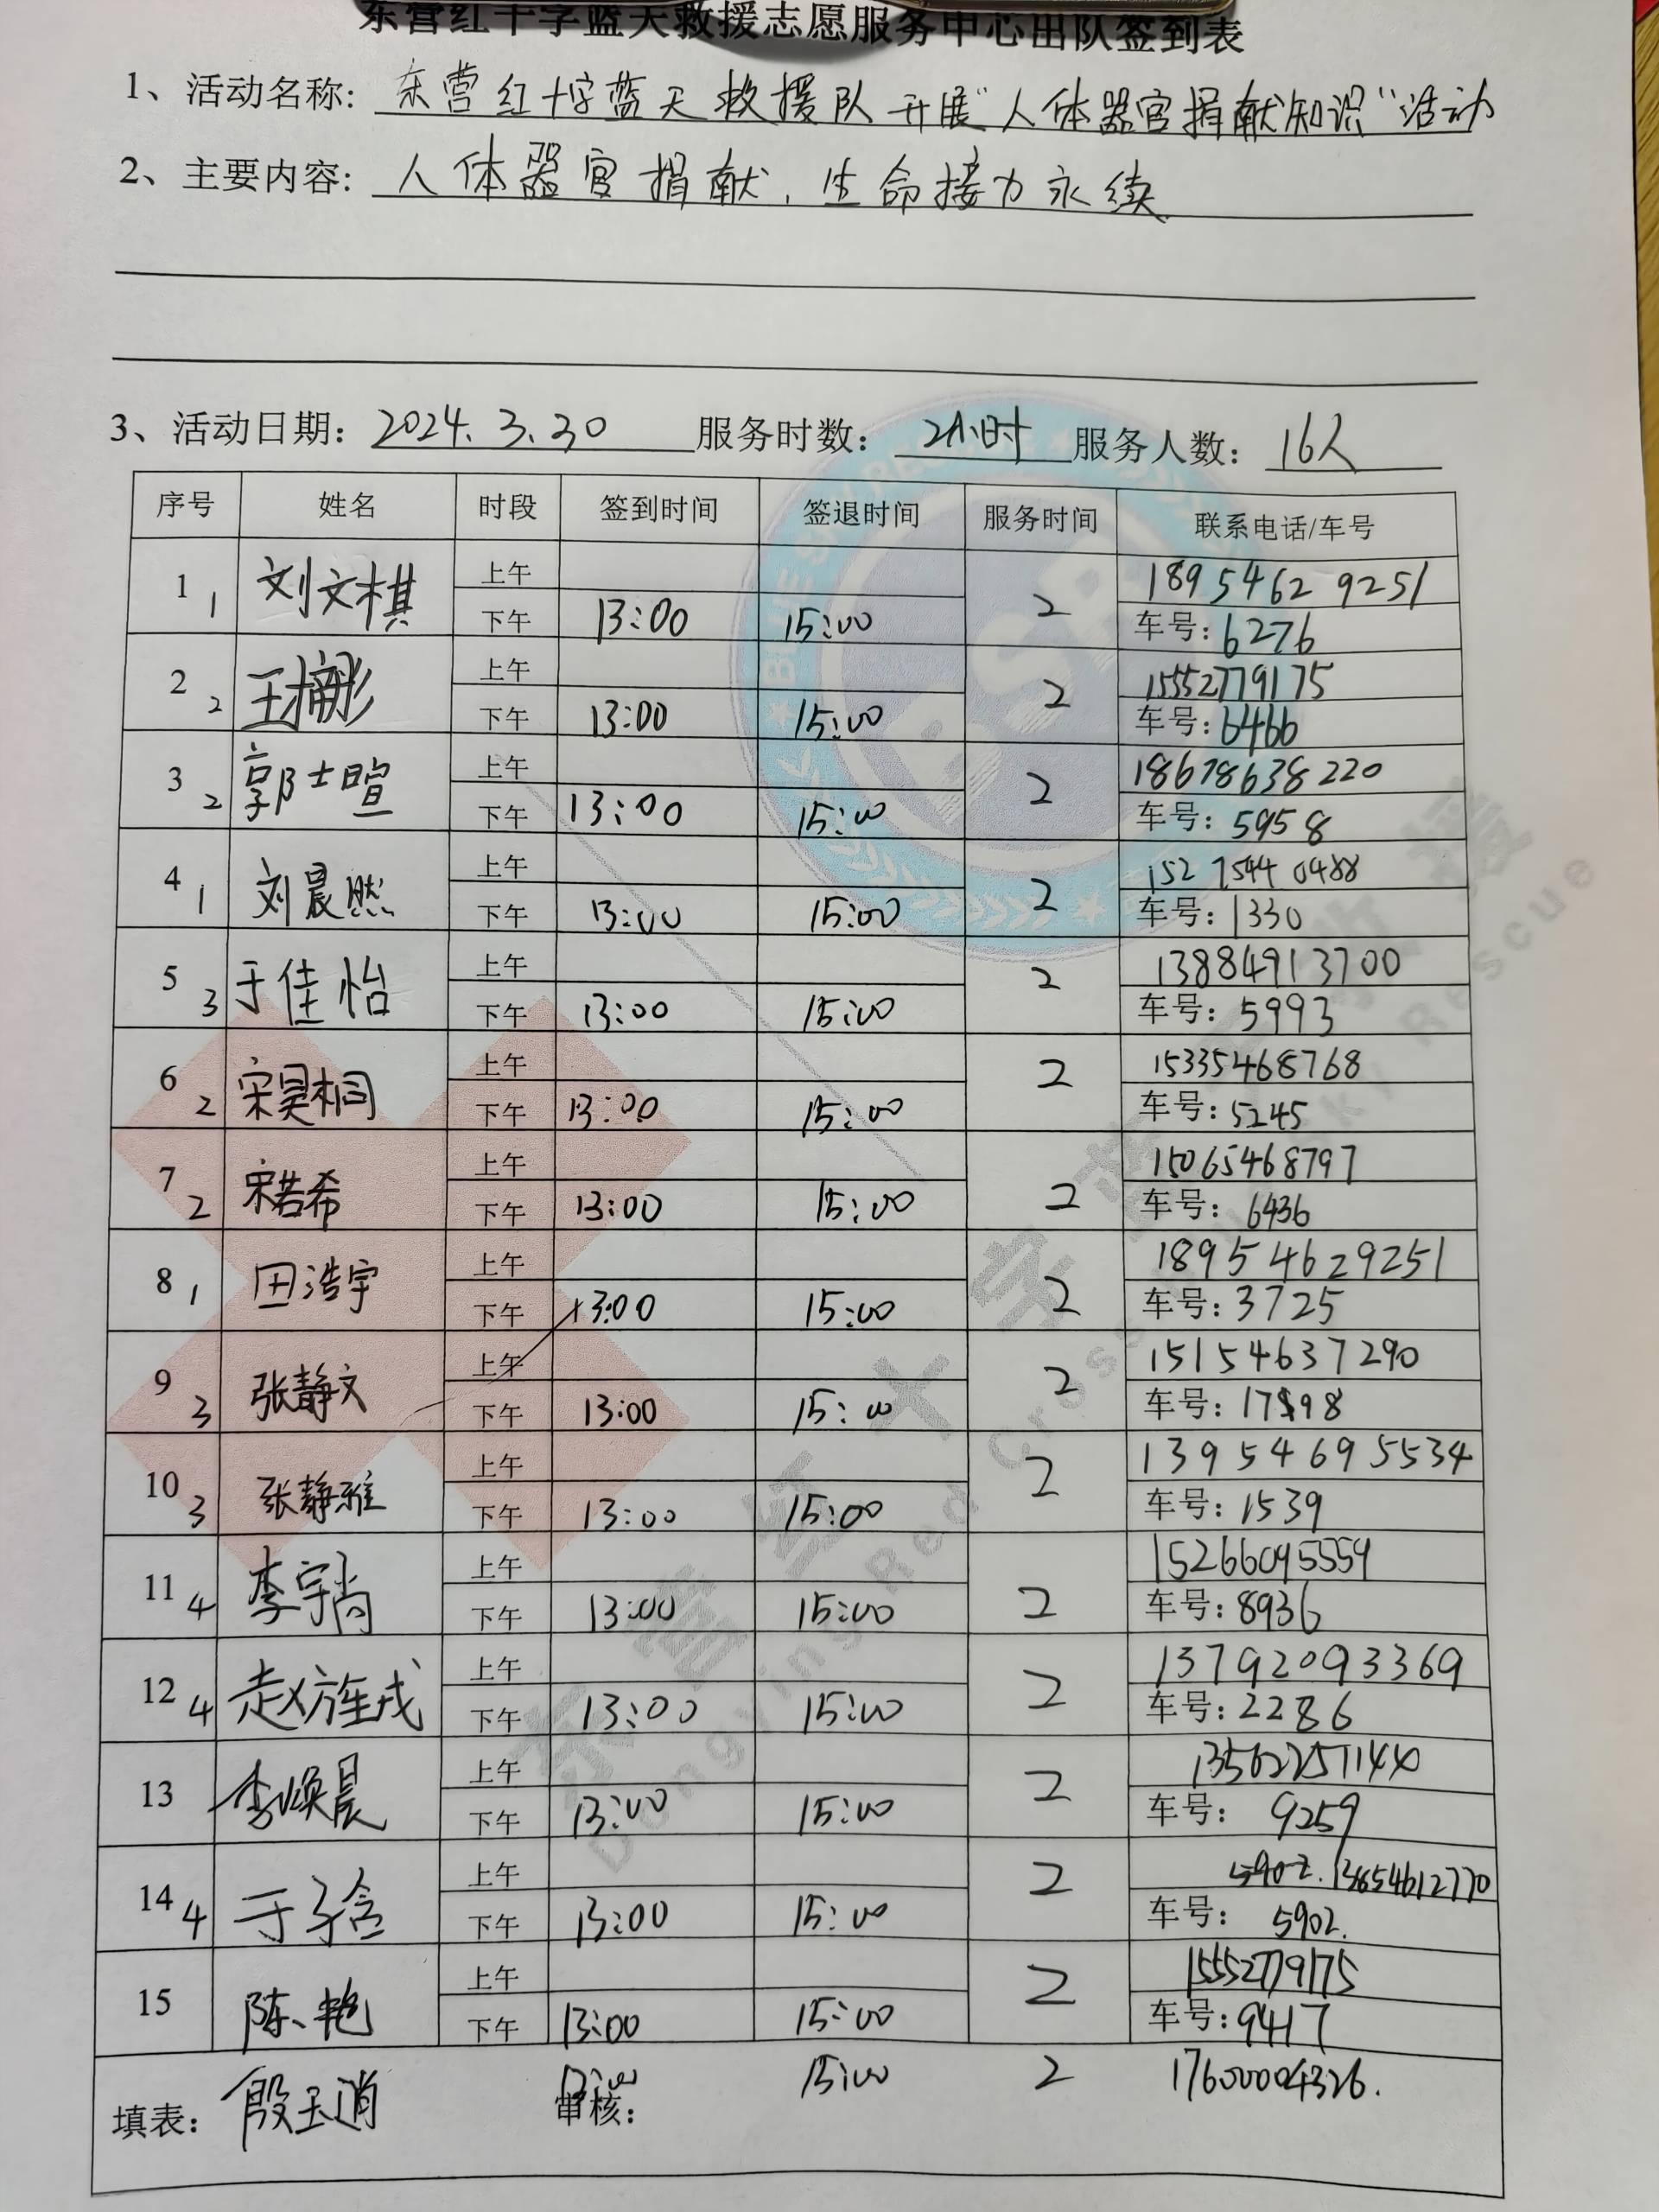 东营红十字蓝天救援志愿服务中心出队签到表
1、活动名称: 东营红十字蓝天救援队开展"人体器官捐献知识"活动
2、主要内容: 人体器官捐献,生命接力永续.
3、活动日期: 2024.3.30 服务时数: 2小时 服务人数: 16人
序号 姓名 时段 签到时间 签退时间 服务时间 联系电话/车号
1 1 刘文棋 上午 2 18954629251
下午 13:00 15:00 车号: 6276
2 2 王楠彤 上午 2 15552779175
下午 13:00 15:00 车号: 6466
3 2 郭士暄 上午 2 18678638220
下午 13:00 15:00 车号: 5958
4 1 刘晨然 上午 2 152 7544 0488
下午 13:00 15:00 车号: 1330
5 3 于佳怡 上午 2 13884913700
下午 13:00 15:00 车号: 5993
6 2 宋昊桐 上午 2 15335468768
下午 13:00 15:00 车号: 5245
7 2 宋若希 上午 2 15065468797
下午 13:00 15:00 车号: 6436
8 1 田浩宇 上午 2 18954629251
下午 13:00 15:00 车号: 3725
9 3 张静文 上午 2 15154637290
下午 13:00 15:00 车号:
10 3 张静雅 上午 2 13954695534
下午 13:00 15:00 车号: 1539
11 4 李宇尚 上午 2 15266095559
下午 13:00 15:00 车号: 8936
12 4 赵旌戎 上午 2 13792093369
下午 13:00 15:00 车号: 2286
13 李焕晨 上午 2 13562257144
下午 13:00 15:00 车号: 9259
14 4 于子含 上午 2 13654612770
下午 13:00 15:00 车号: 5902.
15 陈艳 上午 2 15552779175
下午 13:00 15:00 车号: 9417
填表: 殷玉逍 13:00 审核: 15:00 2 17600004326.
BLUE SKY RESCUE
BSR
东营红十字蓝天救援
Dongying Red Cross Blue Sky Rescue